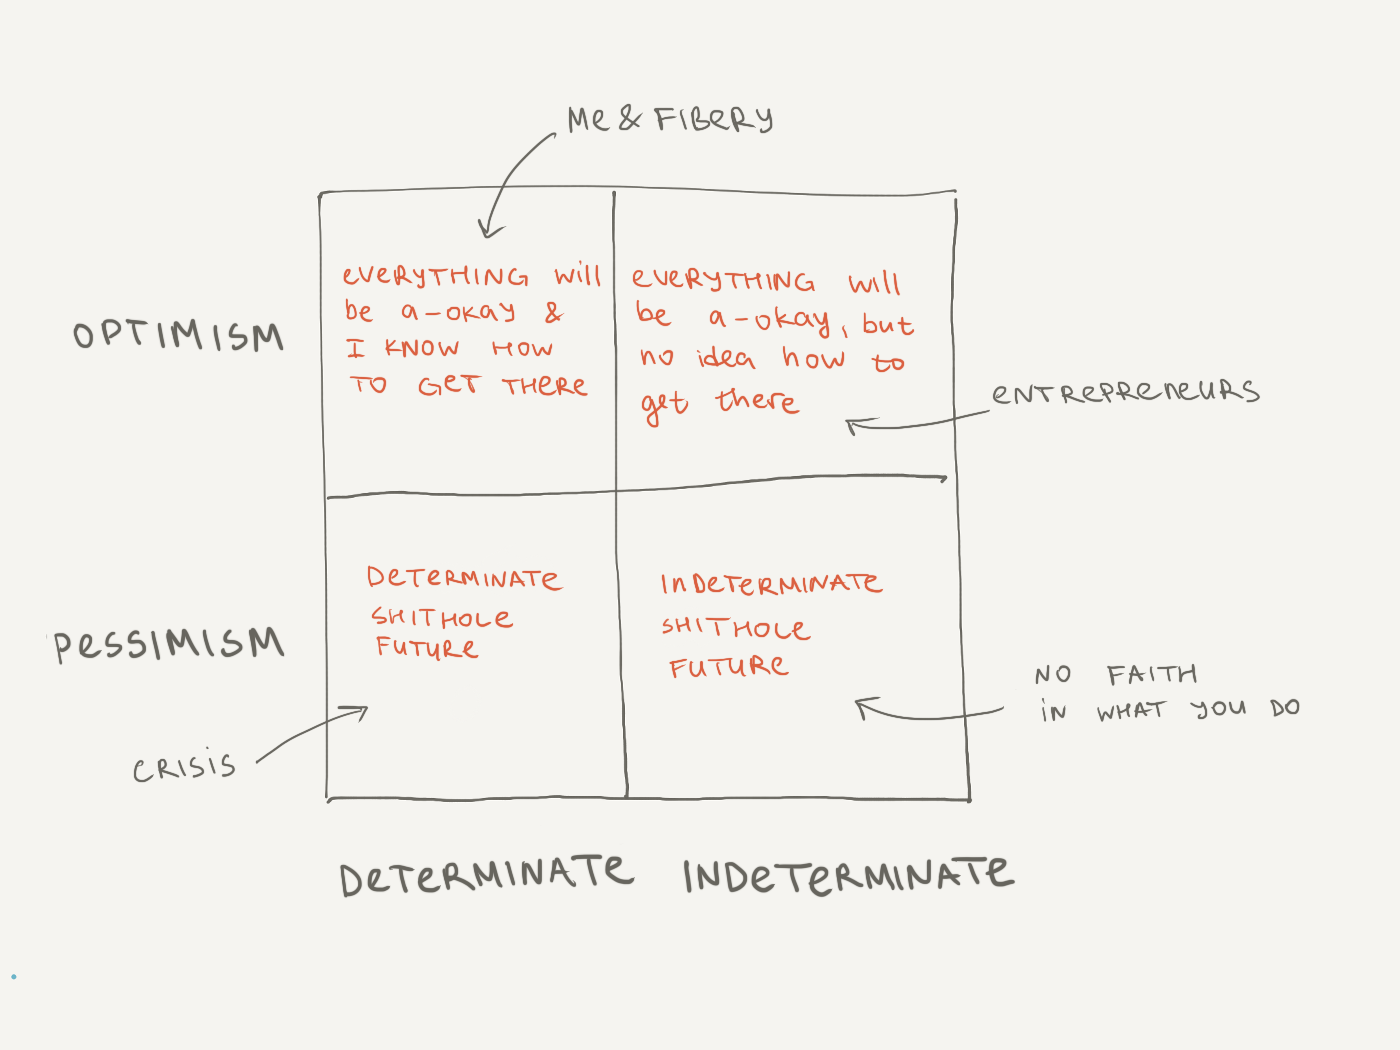 Me & FIBERY
everyTHING will
be a-okay &
I KNOW HOW
TO GET THERE
everyTHING will
be a-okay, but
no idea how to
get there
OPTIMISM
ENTREPRENEURS
DETERMINATE
SHITHOLE
FUTURE
INDETERMINATE
SHITHOLE
FUTURE
PESSIMISM
NO FAITH
iN WHAT YOU DO
CRISIS
DETERMINATE
INDETERMINATE